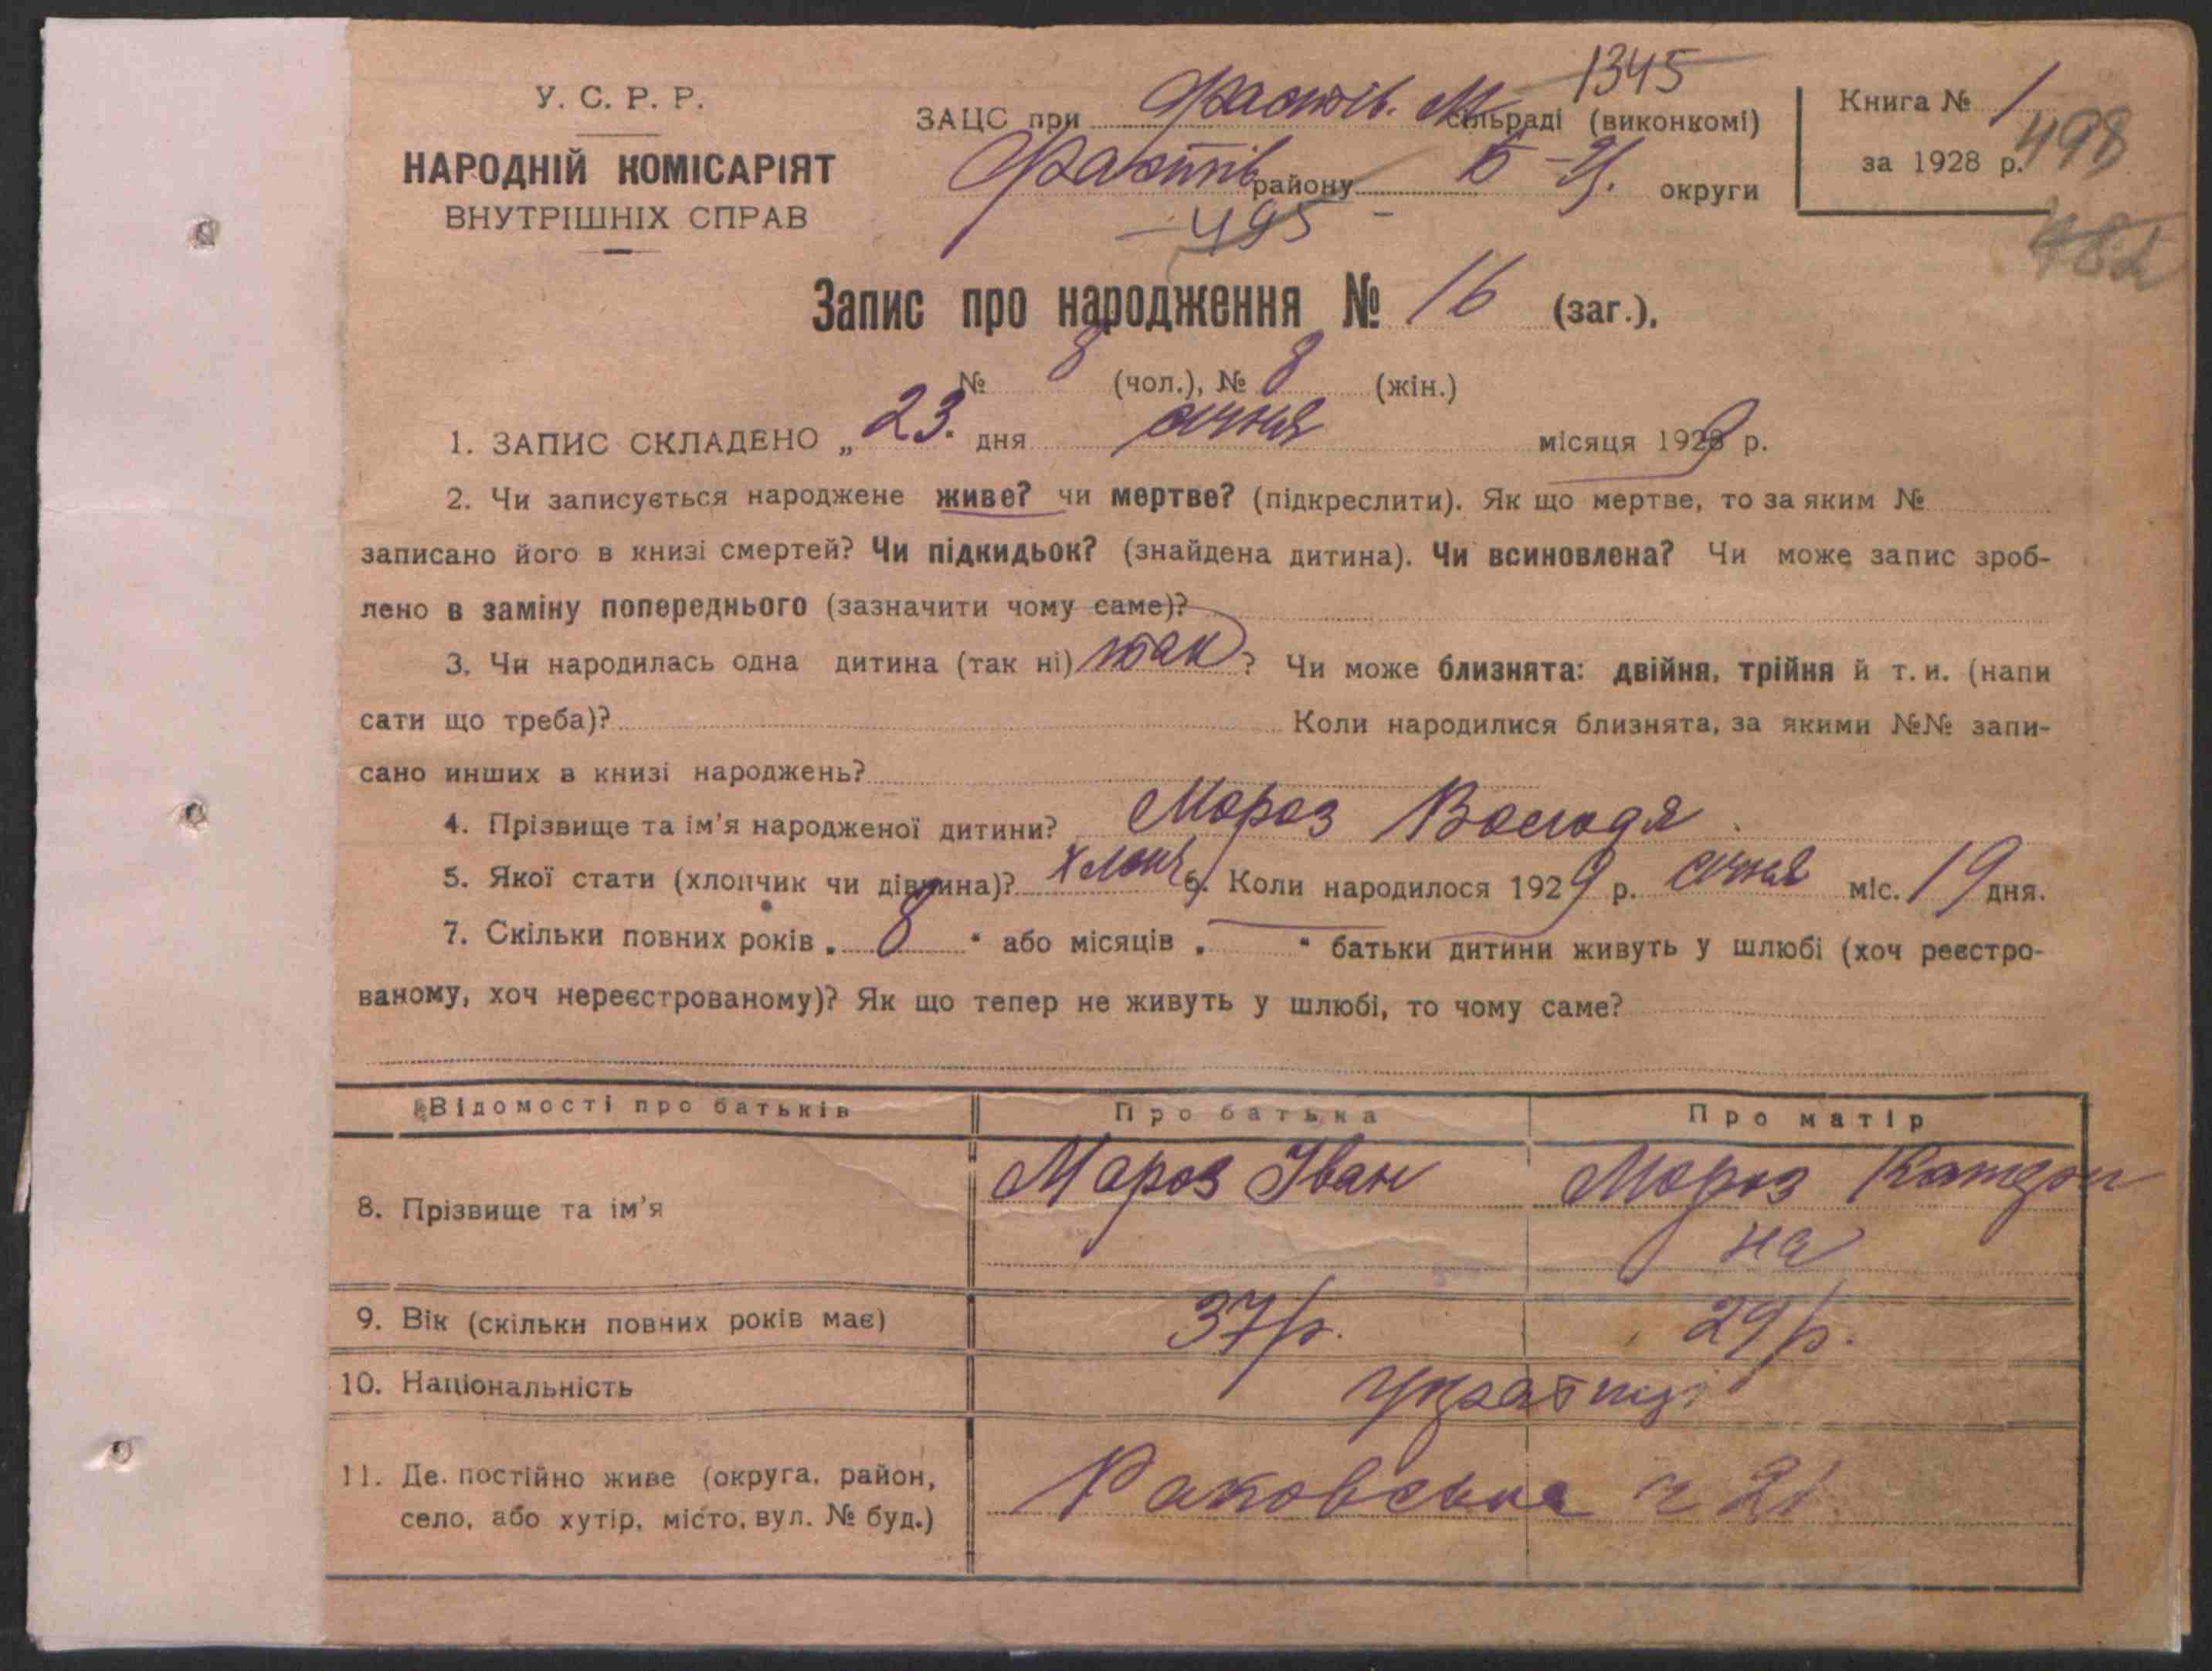 У. С. Р. Р.
НАРОДНІЙ КОМІСАРІЯТ
ВНУТРІШНІХ СПРАВ
1345
ЗАЦС при Фастів. М сільраді (виконкомі)
Фастів району Б-Ц. округи
495
Книга № 1
за 1928 р.
498
Запис про народження № 16 (заг.),
№ 8 (чол.), № 8 (жін.)
1. ЗАПИС СКЛАДЕНО „ 23. дня січня місяця 1929 р.
2. Чи записується народжене живе? чи мертве? (підкреслити). Як що мертве, то за яким №
записано його в книзі смертей? Чи підкидьок? (знайдена дитина). Чи всиновлена? Чи може запис зроб-
лено в заміну попереднього (зазначити чому саме)?
3. Чи народилась одна дитина (так ні) так ? Чи може близнята: двійня, трійня й т. и. (напи
сати що треба)? Коли народилися близнята, за якими №№ запи-
сано инших в книзі народжень?
4. Прізвище та ім'я народженої дитини? Мороз Володя
5. Якої статі (хлопчик чи дівчина)? хлопч 6. Коли народилося 1929 р. січня міс. 19 дня.
7. Скільки повних років „ 8 " або місяців „ " батьки дитини живуть у шлюбі (хоч реєстро-
ваному, хоч нереєстрованому)? Як що тепер не живуть у шлюбі, то чому саме?
Відомості про батьків Про батька Про матір
8. Прізвище та ім'я Мороз Іван Мороз Катери
на
9. Вік (скільки повних років має) 37 р. 29 р.
10. Національність українці
11. Де постійно живе (округа, район,
село, або хутір, місто, вул. № буд.) Раковська ч 21